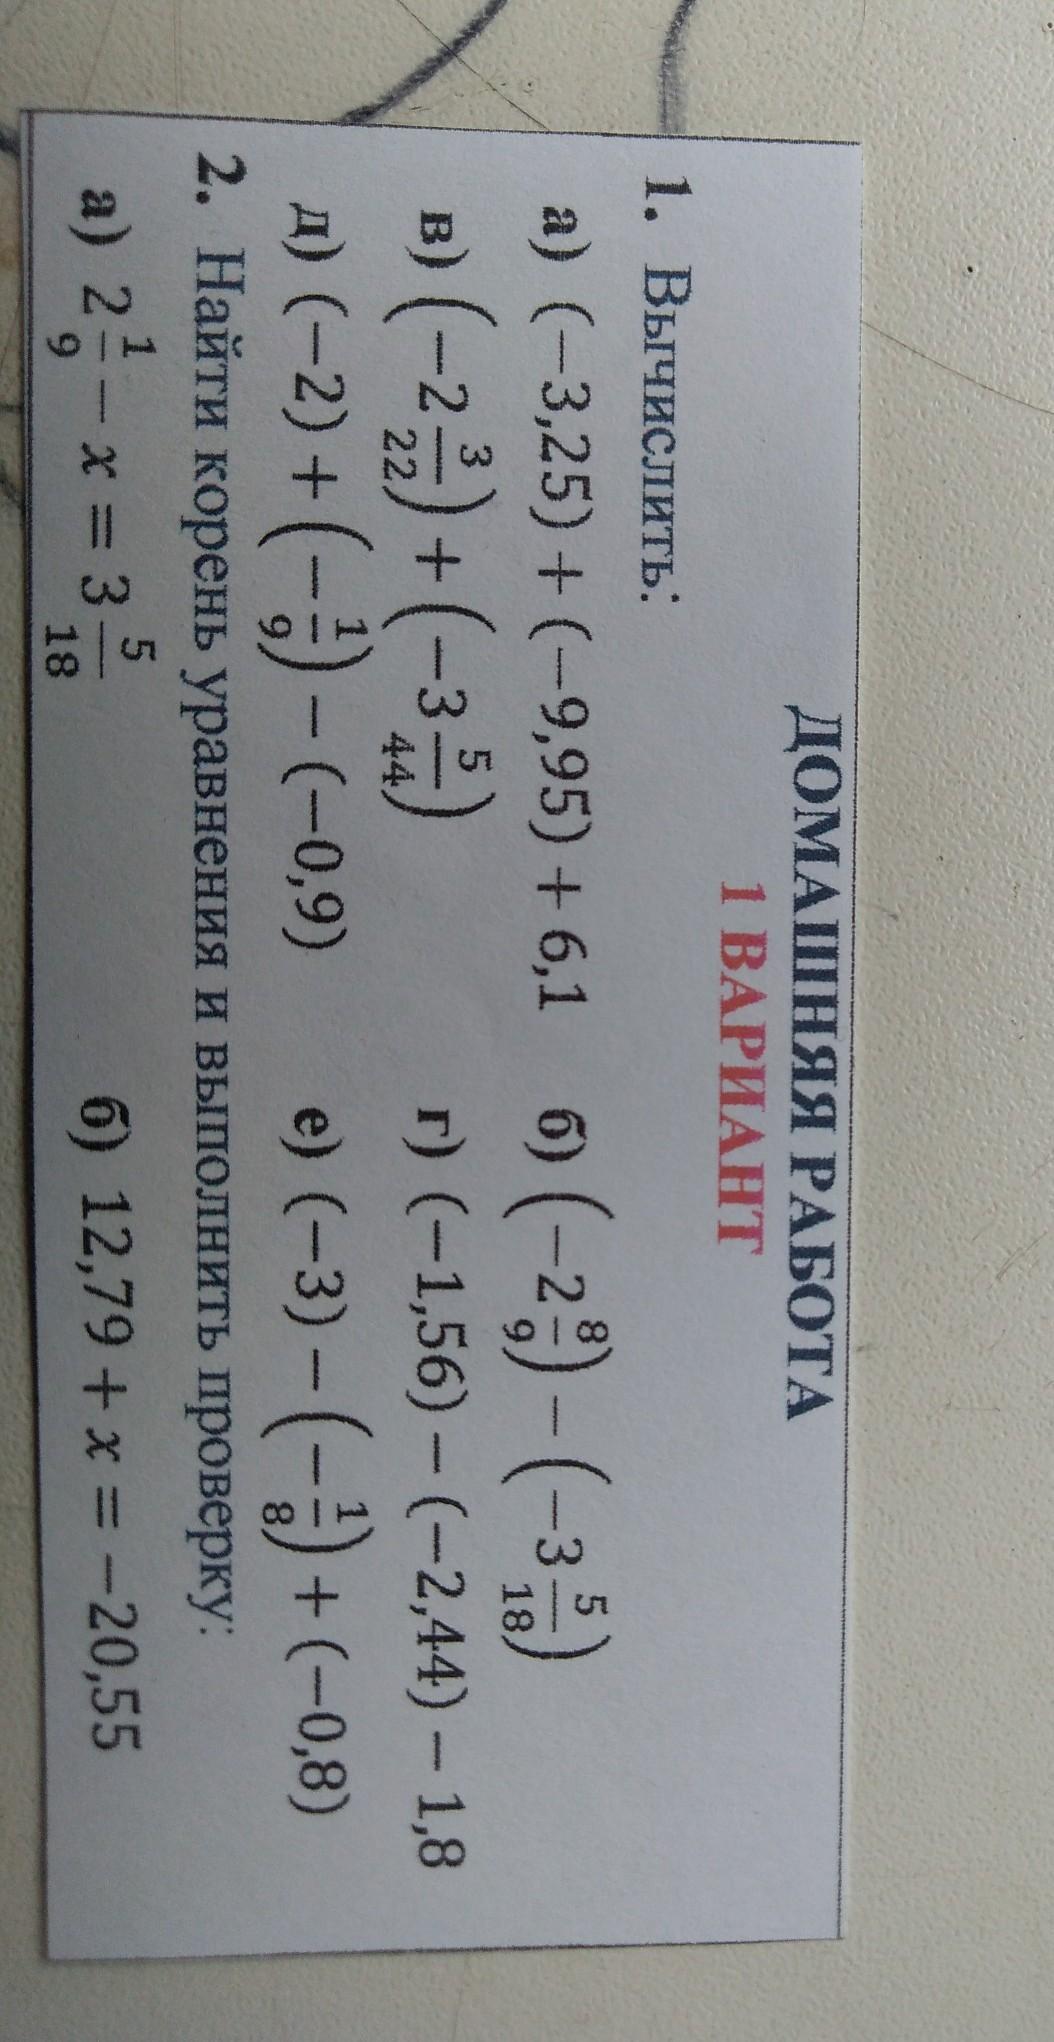 ДОМАШНЯЯ РАБОТА
1 ВАРИАНТ
1. Вычислить:
а) (−3,25) + (−9,95) + 6,1 б) (−2 8/9) − (−3 5/18)
в) (−2 3/22) + (−3 5/44) г) (−1,56) − (−2,44) − 1,8
д) (−2) + (−1/9) − (−0,9) е) (−3) − (−1/8) + (−0,8)
2. Найти корень уравнения и выполнить проверку:
а) 2 1/9 − x = 3 5/18 б) 12,79 + x = −20,55